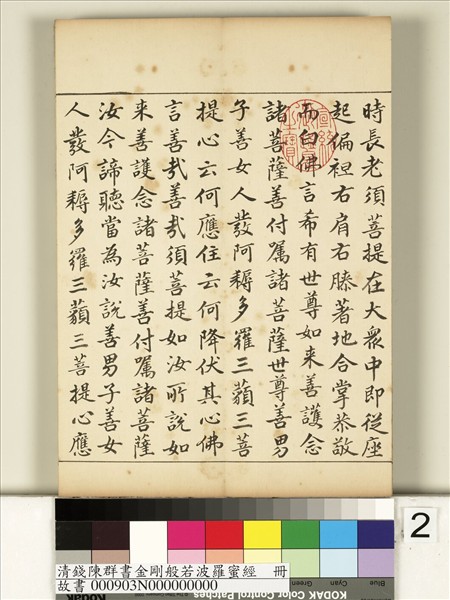 時長老須菩提在大衆中即從座
起偏袒右肩右膝著地合掌恭敬
而白佛言希有世尊如来善護念
諸菩薩善付嘱諸菩薩世尊善男
子善女人發阿耨多羅三藐三菩
提心云何應住云何降伏其心佛
言善㢤善㢤須菩提如汝所說如
来善護念諸菩薩善付嘱諸菩薩
汝今諦聽當為汝說善男子善女
人發阿耨多羅三藐三菩提心應
2
Blue Cyan Green
KODAK Color Control Patches
清錢陳群書金剛般若波羅蜜經 冊
故書 000903N000000000